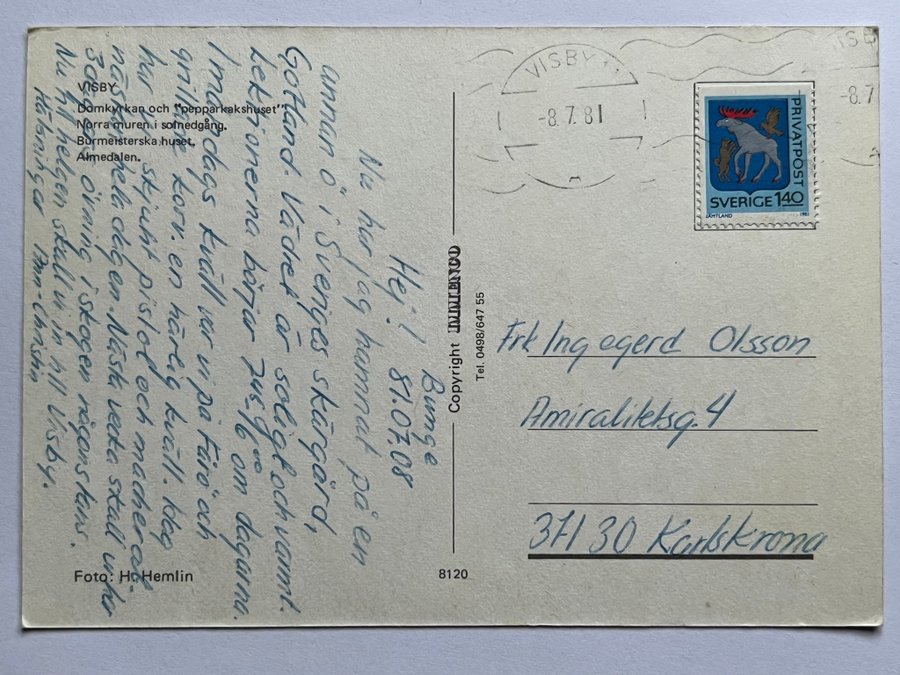 VISBY
Domkyrkan och "pepparkakshuset".
Norra muren i solnedgång.
Burmeisterska huset.
Almedalen.
Foto: H. Hemlin
Copyright
Tel. 0498/647 55
8120
VISBY
-8.7.81
VISB
-8.7
PRIVATPOST
SVERIGE 140
JÄMTLAND 1981
Bunge
81.07.08
Hej!
Nu har jag hamnat på en
annan ö i Sveriges skärgård,
Gotland. Vädret är soligt och varmt.
Lektionerna börjar 745, om dagarna.
I måndags kväll var vi på Fårö och
grillade korv. en härlig kväll. Idag
har vi skjutit pistol och macherat
nästan hela dagen. Nästa vecka skall vi ha
övning i skogen någonstans.
Nu till helgen skall vi in till Visby.
Hälsningar Ann-Christin
Frk Ingegerd Olsson
Amiralitetsg. 4
371 30 Karlskrona